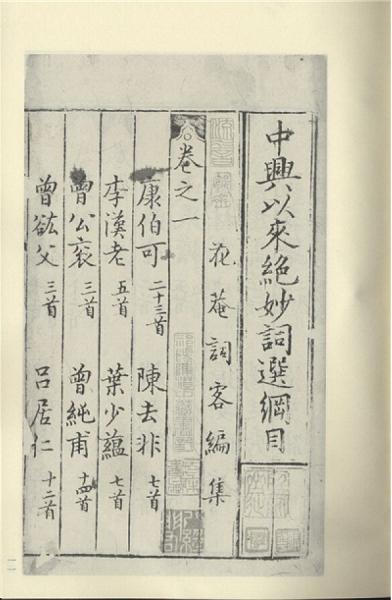 中興以來絶妙詞選綱目
花菴詞客編集
卷之一
康伯可 二十三首 陳去非 七首
李漢老 五首 葉少蘊 七首
曾公衮 三首 曾純甫 十四首
曾谹父 三首 呂居仁 十二首